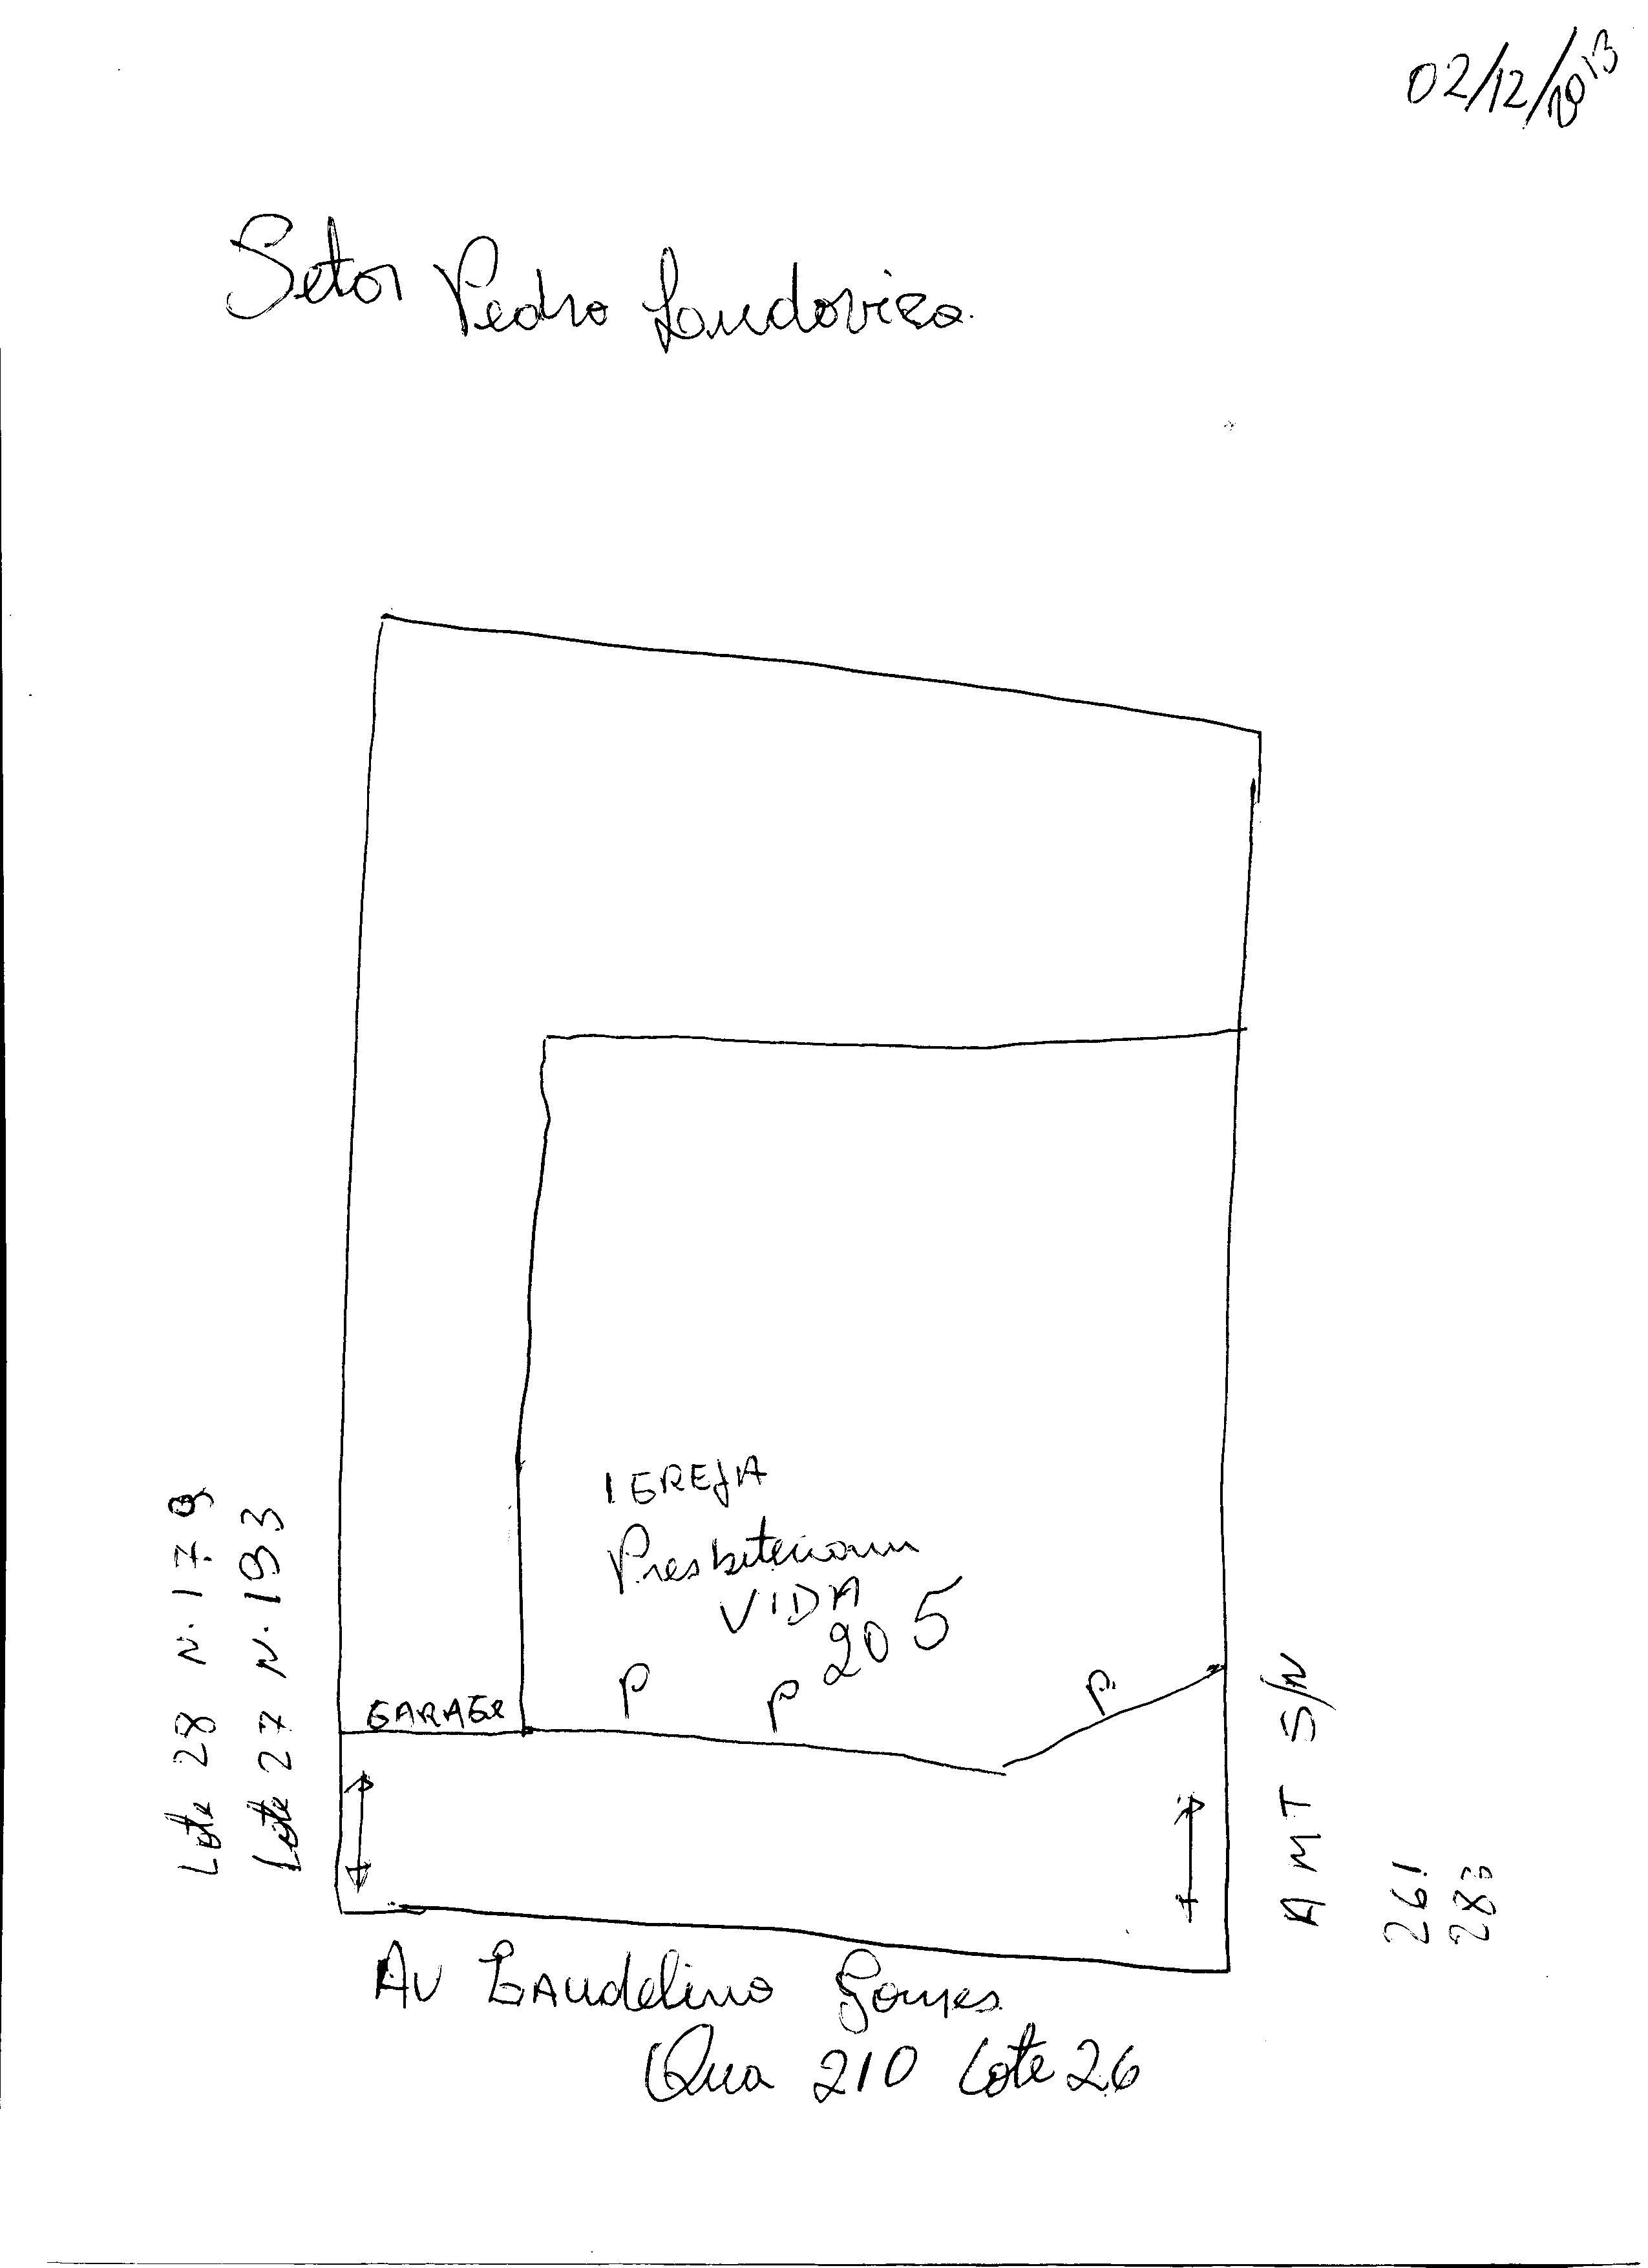 02/12/2013
Setor Pedro Ludovico.
IGREJA
Presbiteriana
VIDA
205
P
P
P
GARAGE
Lote 28 N. 179
Lote 27 N. 193
AMT S/N
261
283
Av Laudelino Gomes
Qua 210 Lote 26